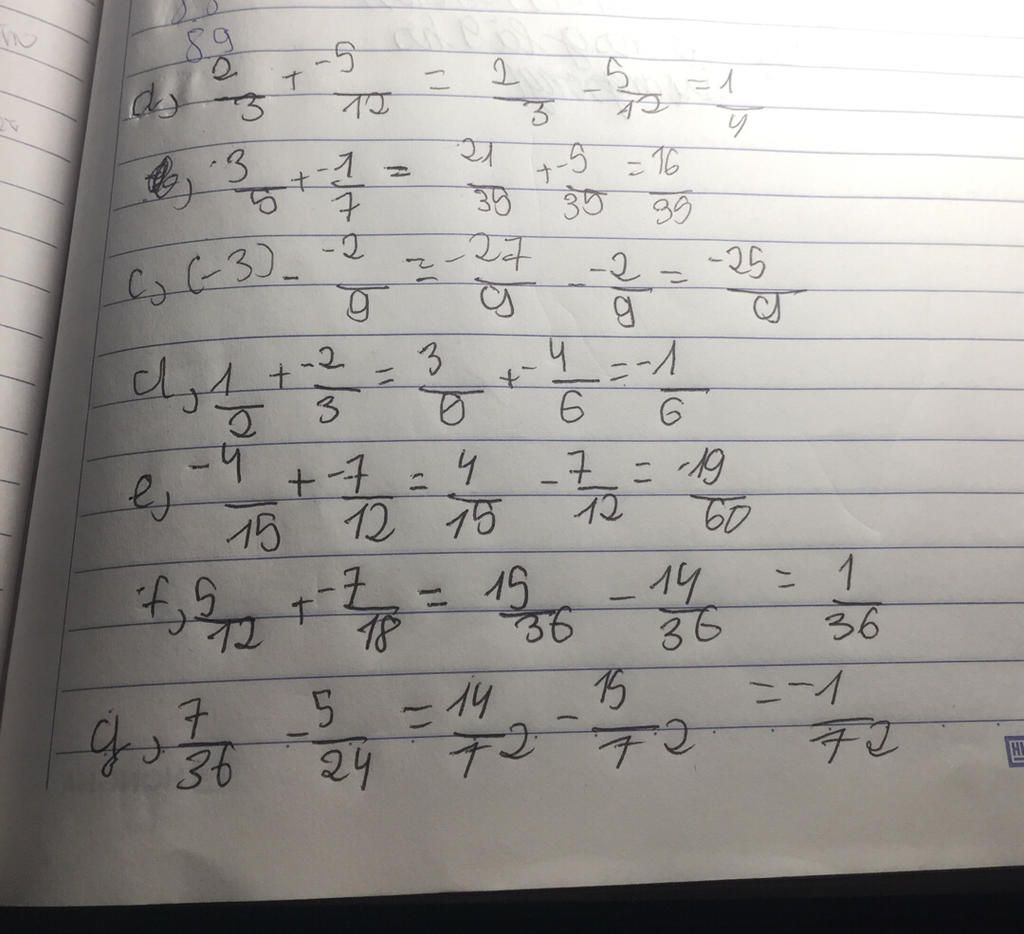 89
a, 2/3 + -5/12 = 2/3 - 5/12 = 1/4
b, 3/5 + -1/7 = 21/35 + -5/35 = 16/35
c, (-3) - -2/9 = -27/9 - -2/9 = -25/9
d, 1/2 + -2/3 = 3/6 + -4/6 = -1/6
e, -4/15 + -7/12 = 4/15 - 7/12 = -19/60
f, 5/12 + -7/18 = 15/36 - 14/36 = 1/36
g, 7/36 - 5/24 = 14/72 - 15/72 = -1/72